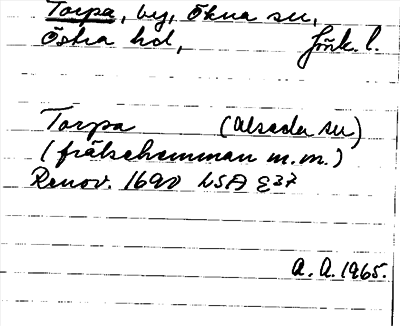 Torpa, by, Ökna sn,
Östra hd, Jönk. l.
Torpa (Alseda sn)
(frälsehemman m.m.)
Renov. 1690 LSA E37
A. A. 1965.